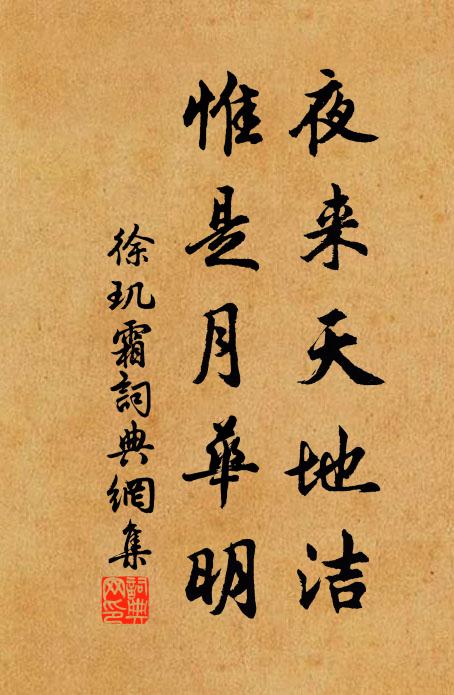 夜来天地洁
惟是月華明
徐玑霜詞典網集
詞典网印